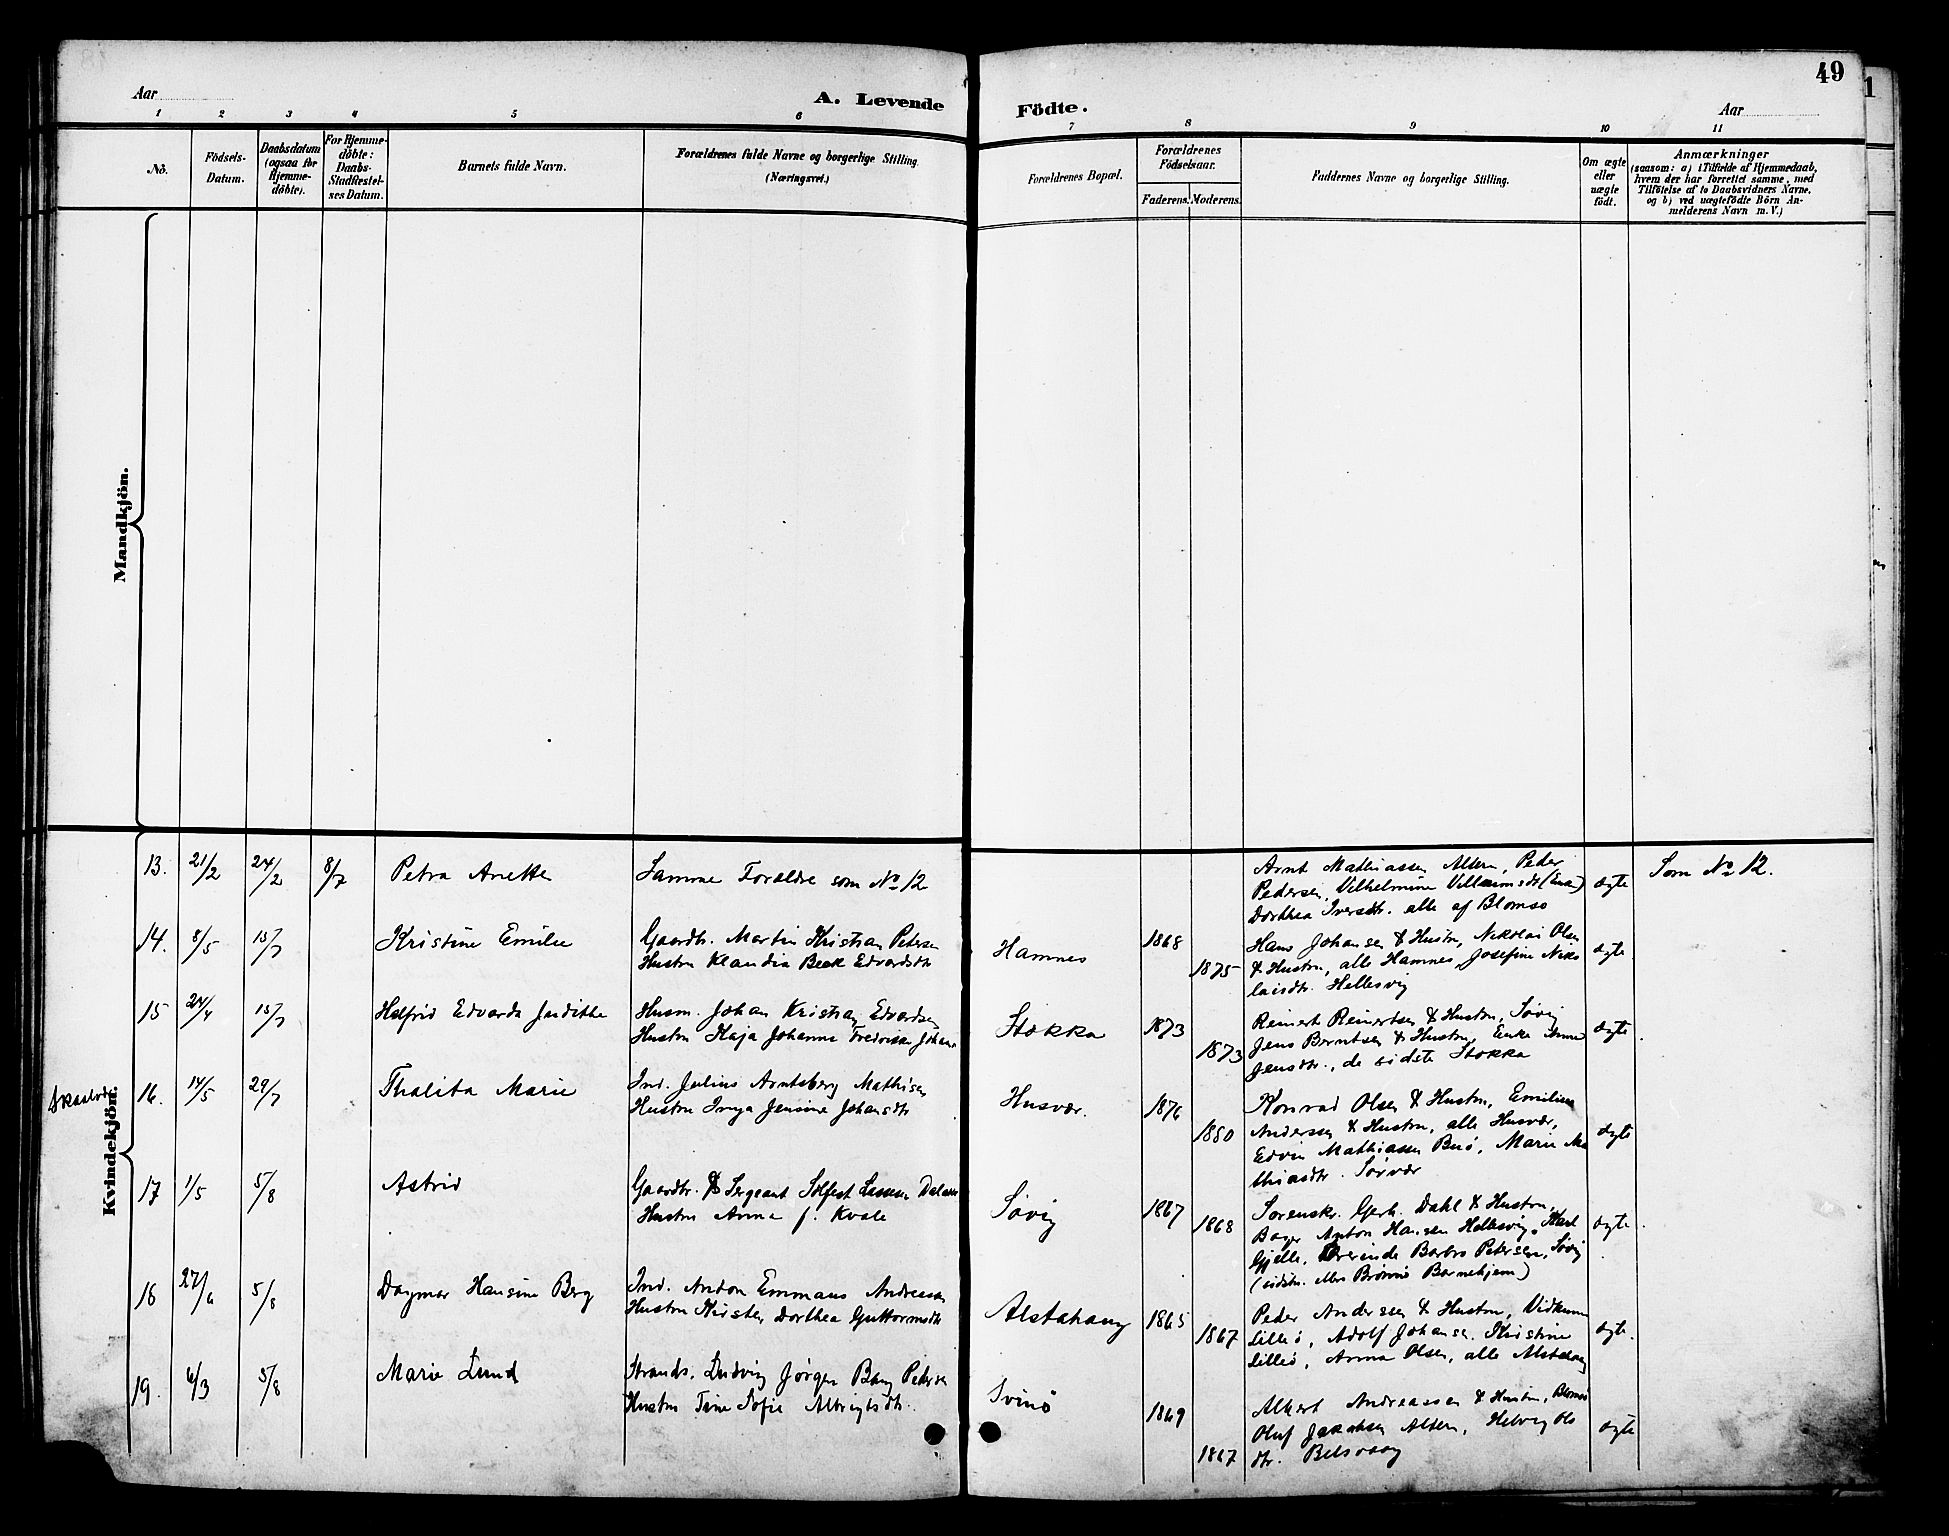 49
Aar
A. Levende
Födte.
Aar
1 2 3 4 5 6 7 8 9 10 11
No.
Födsels-
Datum.
Daabsdatum
(ogsaa for
Hjemme-
döbte).
For Hjemme-
döbte:
Daabs-
Stadfæstel-
ses Datum.
Barnets fulde Navn.
Forældrenes fulde Navne og borgerlige Stilling.
(Næringsvei.)
Forældrenes Bopæl.
Forældrenes
Födselsaar.
Faderens. Moderens.
Faddernes Navne og borgerlige Stilling.
Om ægte
eller
uægte
födt.
Anmærkninger
(saasom: a) i Tilfælde af Hjemmedaab,
hvem der har forrettet samme, med
Tilföielse af to Daabsvidners Navne,
og b) ved uægtefödte Börn An-
melderens Navn m. V.)
Mandkjön.
Kvindekjön.
13. 21/2 24/2 8/7 Petra Anette
Samme Forældre som No 12
Arnt Mathiassen Altern, Peder
Pedersen, Vilhelmine
Dorthea Iversdtr. alle af Blomsø
ægte
Som No 12.
14. 8/5 15/7 Kristine Emilie
Gaardbr. Martin Kristian Petersen
Hustru Klaudia Beck Edvardsdtr
Hamnes
1868
1875
Hans Johansen & Hustru, Nikolai Olsen
& Hustru, alle Hamnes, Josefine Niko
laisdtr. Hellesvig
ægte
15 24/4 15/7 Helfrid Edvarda Judithe
Husm. Johan Kristian Edvardsen
Hustru Kaja Johanna Fredrikke
Stokka
1873
1873
Reinert Reinertsen & Hustru, Søvig
Jens Berntsen & Hustru, Enke Anne
Jensdtr., de sidste Stokka
ægte
16. 14/5 29/7 Thalita Marie
Ind. Julius Arntsberg Mathisen
Hustru Inga Jensine Johansdtr
Husvær.
1876
1880
Konrad Olsen & Hustru,
Anderssen & Hustru, alle Husvær,
Edvin Mathiassen Buø, Marie Ma
thiasdtr. Sørvær
ægte
17 1/5 5/8 Astrid
Gaardbr. & Sergeant
Hustru Anna f. Kvale
Søvig
1867
1868
Sorenskr. Gerh. Dahl & Hustru,
Bager Anton Hansen Hellesvig,
Gjelle, Barbro Petersen, Søvig
(sidstn. Brønnø Barnehjem)
ægte
18 27/6 5/8 Dagmar Hansine Berg
Ind. Anton Emmaus Andreassen
Hustru Kirsten Dorthea Guttormsdtr
Alstahaug
1865
1867
Peder Anderssen & Hustru,
Lilleø, Adolf Johansen, Kristine
Lilleø, Anna Olsen, alle Alstahaug
ægte.
19. 6/3 5/8 Marie Lund
Strands. Ludvig Jørgen Bang Pedersen
Hustru Trine Sofie Albrigtsdtr.
Svinø
1869
1867
Albert Andreassen & Hustru, Blomsø
Oluf Jakobsen Altern, Helvig Ols
dtr. Belsvaag
ægte